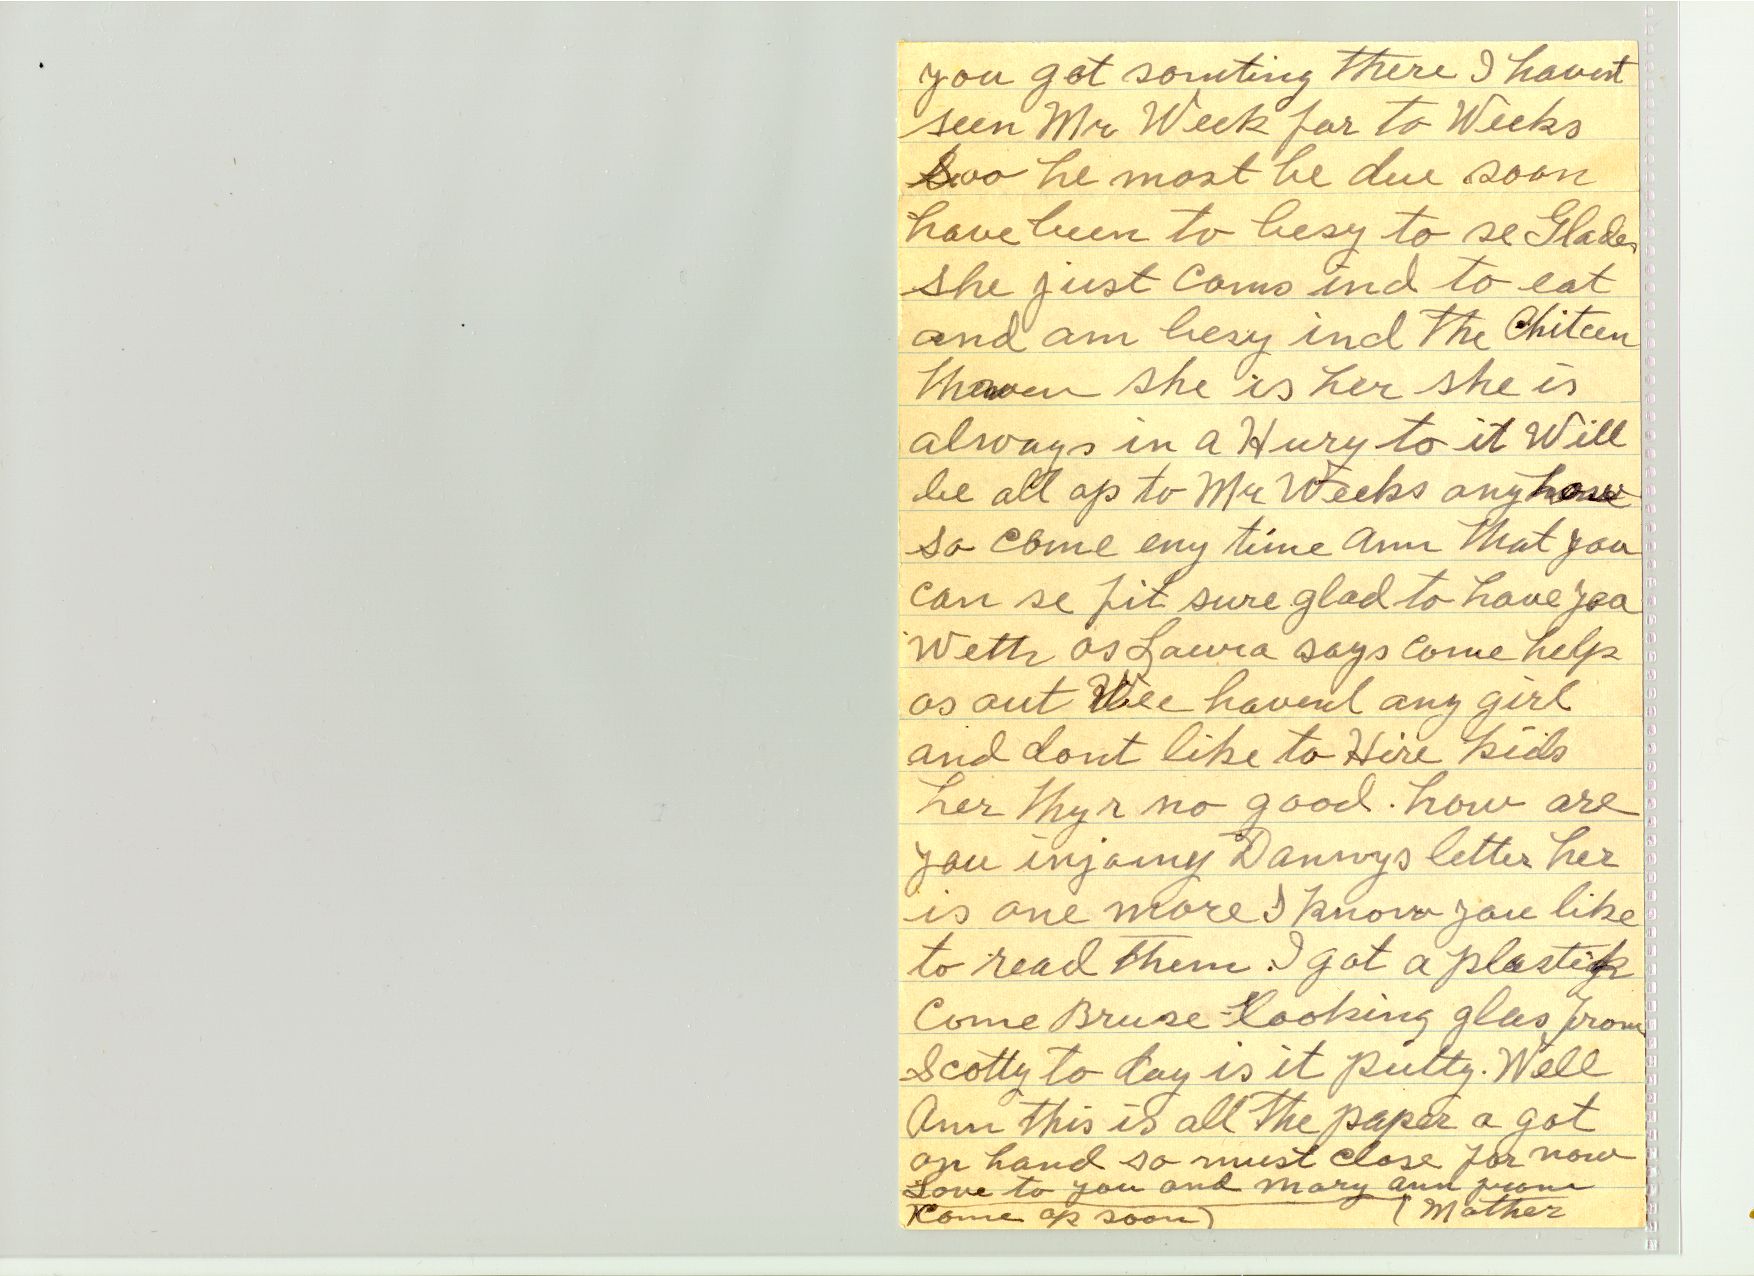 you got somting there I havent
seen Mr Week for to Weeks
Soo he most be due soon
have been to besy to se Glades
she just coms ind to eat
and am besy ind the Chiteen
she is her she is
always in a Hury to it Will
be all op to Mr Weeks anyhow
so come eny time Ann that you
can se fit sure glad to have you
Weth os Laura says come help
os out Wee havent any girl
and dont like to Hire kids
her thy r no good. how are
you injoing Dannys letter her
is one more I know you like
to read them. I got a plastick
Come Bruse looking glas from
Scotty to day is it putty. Well
Ann this is all the paper a got
on hand so must close for now
Love to you and Mary ann from
(Come op soon) (Mother